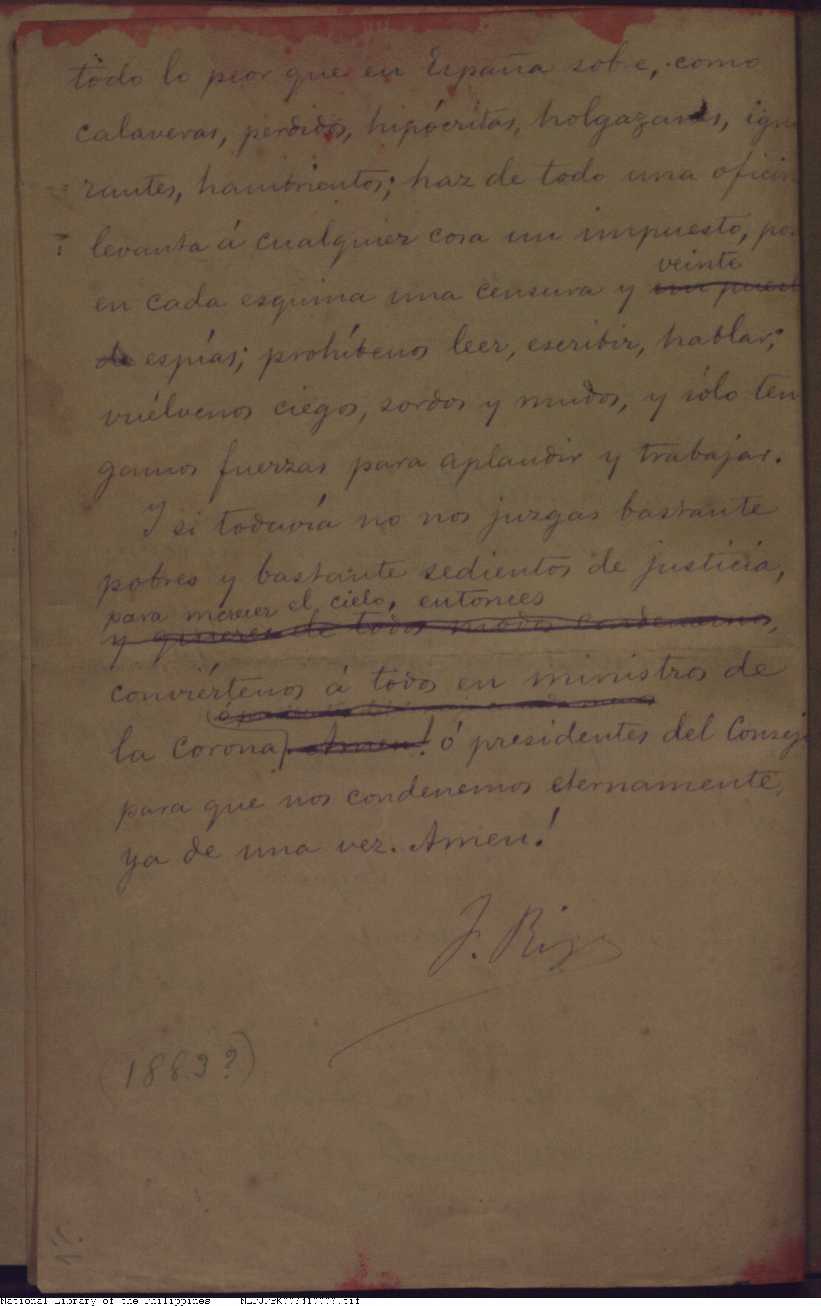 todo lo peor que en España sobre, como
calaveras, perdidos, hipócritas, holgazanes, igno
rantes, hambrientos; haz de todo una oficin
levanta á cualquier cosa un impuesto, pon
veinte
en cada esquina una censura y
de espías; prohíbenos leer, escribir, hablar;
vuélvenos ciegos, sordos y mudos, y sólo ten
gamos fuerzas para aplaudir y trabajar.
Y si todavía no nos juzgas bastante
pobres y bastante sedientos de justicia,
para merecer el cielo, entonces
y quieres de todos modos condenarnos,
conviértenos á todos en ministros de
la Corona, Amen! ó presidentes del Consejo
para que nos condenemos eternamente,
ya de una vez. Amen!
J. Rizal
(1883?)